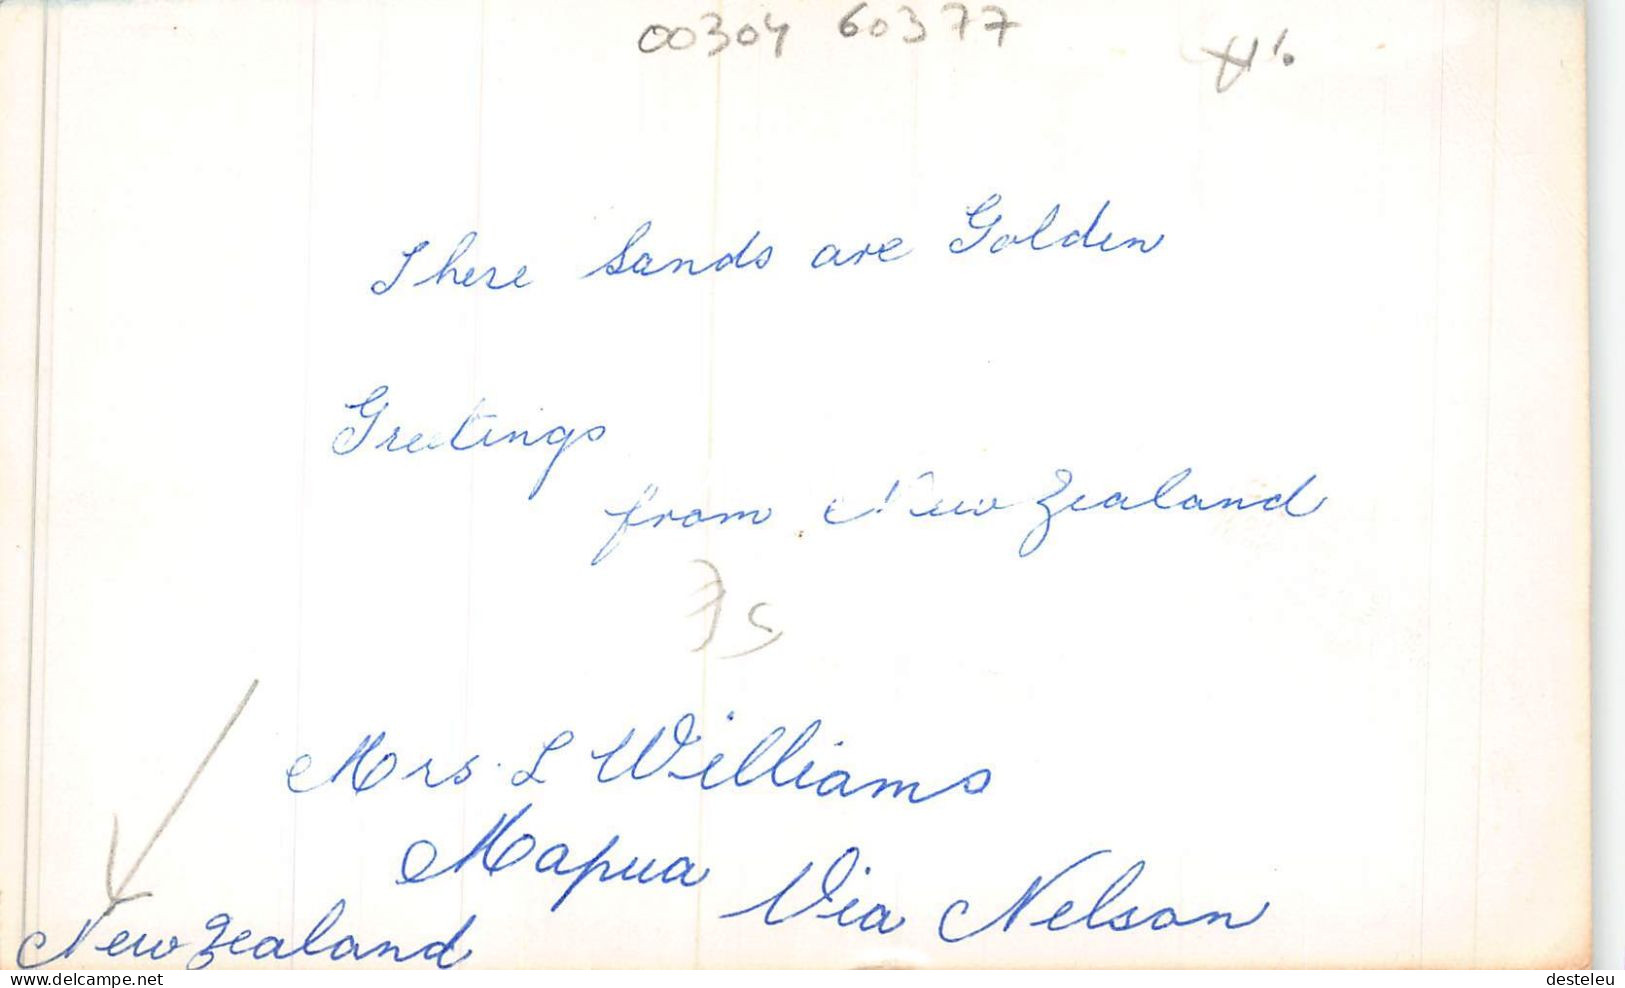 00304 60377
These Sands are Golden
Greetings
from New Zealand
75
Mrs. L Williams
Mapua Via Nelson
New Zealand
delcampe.net
desteleu